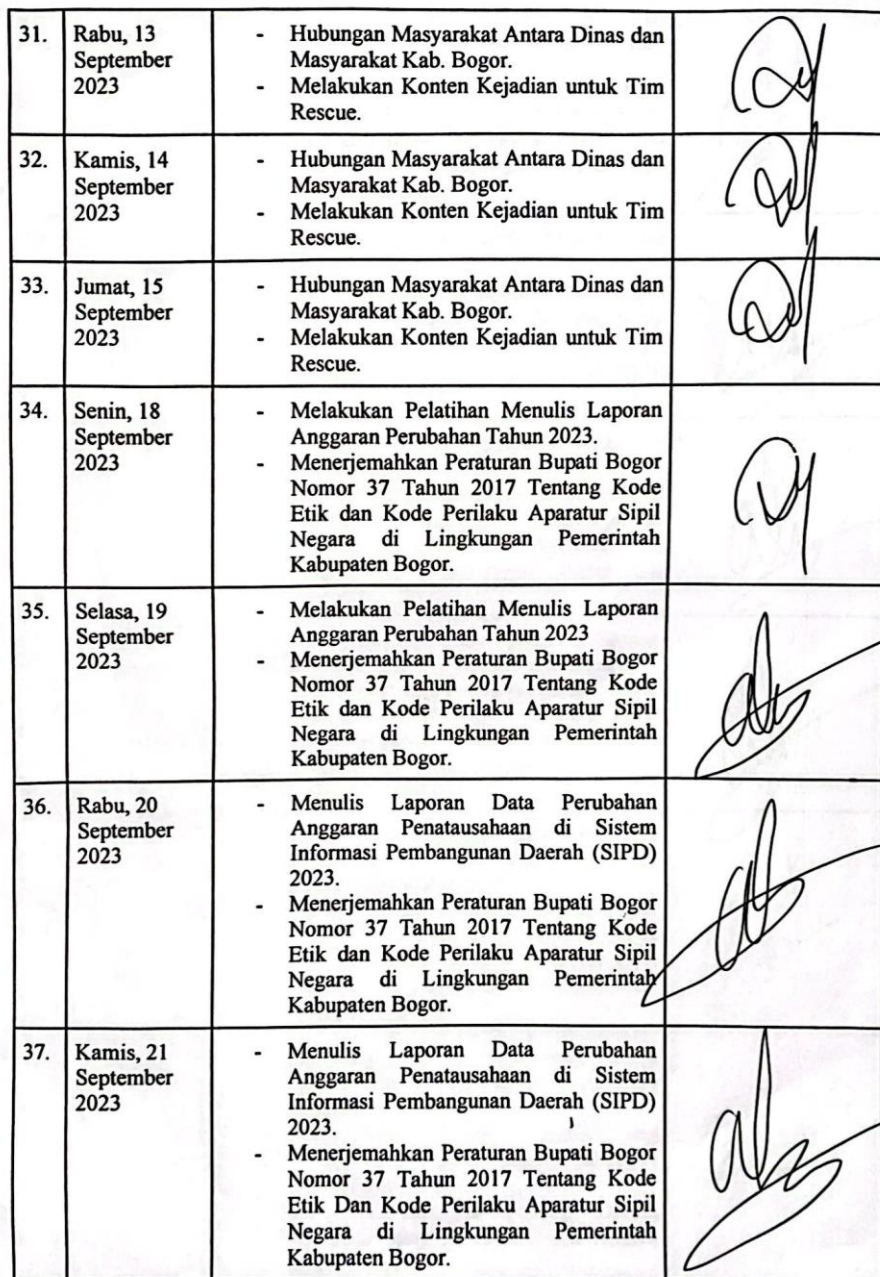 31. Rabu, 13 - Hubungan Masyarakat Antara Dinas dan
September Masyarakat Kab. Bogor.
2023 - Melakukan Konten Kejadian untuk Tim
Rescue.
32. Kamis, 14 - Hubungan Masyarakat Antara Dinas dan
September Masyarakat Kab. Bogor.
2023 - Melakukan Konten Kejadian untuk Tim
Rescue.
33. Jumat, 15 - Hubungan Masyarakat Antara Dinas dan
September Masyarakat Kab. Bogor.
2023 - Melakukan Konten Kejadian untuk Tim
Rescue.
34. Senin, 18 - Melakukan Pelatihan Menulis Laporan
September Anggaran Perubahan Tahun 2023.
2023 - Menerjemahkan Peraturan Bupati Bogor
Nomor 37 Tahun 2017 Tentang Kode
Etik dan Kode Perilaku Aparatur Sipil
Negara di Lingkungan Pemerintah
Kabupaten Bogor.
35. Selasa, 19 - Melakukan Pelatihan Menulis Laporan
September Anggaran Perubahan Tahun 2023
2023 - Menerjemahkan Peraturan Bupati Bogor
Nomor 37 Tahun 2017 Tentang Kode
Etik dan Kode Perilaku Aparatur Sipil
Negara di Lingkungan Pemerintah
Kabupaten Bogor.
36. Rabu, 20 - Menulis Laporan Data Perubahan
September Anggaran Penatausahaan di Sistem
2023 Informasi Pembangunan Daerah (SIPD)
2023.
- Menerjemahkan Peraturan Bupati Bogor
Nomor 37 Tahun 2017 Tentang Kode
Etik dan Kode Perilaku Aparatur Sipil
Negara di Lingkungan Pemerintah
Kabupaten Bogor.
37. Kamis, 21 - Menulis Laporan Data Perubahan
September Anggaran Penatausahaan di Sistem
2023 Informasi Pembangunan Daerah (SIPD)
2023.
- Menerjemahkan Peraturan Bupati Bogor
Nomor 37 Tahun 2017 Tentang Kode
Etik Dan Kode Perilaku Aparatur Sipil
Negara di Lingkungan Pemerintah
Kabupaten Bogor.